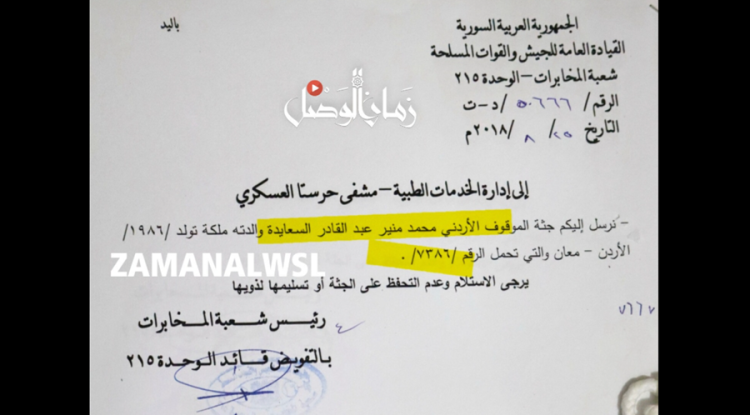 الجمهورية العربية السورية
باليد
القيادة العامة للجيش والقوات المسلحة
شعبة المخابرات – الوحدة ٢١٥
الرقم/ ٥٠٦٦٦ /د-ت
التاريخ ٢٥ / ٨ /٢٠١٨م
زمان الوصل
إلى إدارة الخدمات الطبية – مشفى حرستا العسكري
- نرسل إليكم جثة الموقوف الأردني محمد منير عبد القادر السعايدة والدته ملكة تولد /١٩٨٦/
الأردن – معان والتي تحمل الرقم /٧٣٨٦/ .
ZAMANALWSL
يرجى الاستلام وعدم التحفظ على الجثة أو تسليمها لذويها
رئيس شعبة المخابرات
بالتفويض قائد الوحدة ٢١٥